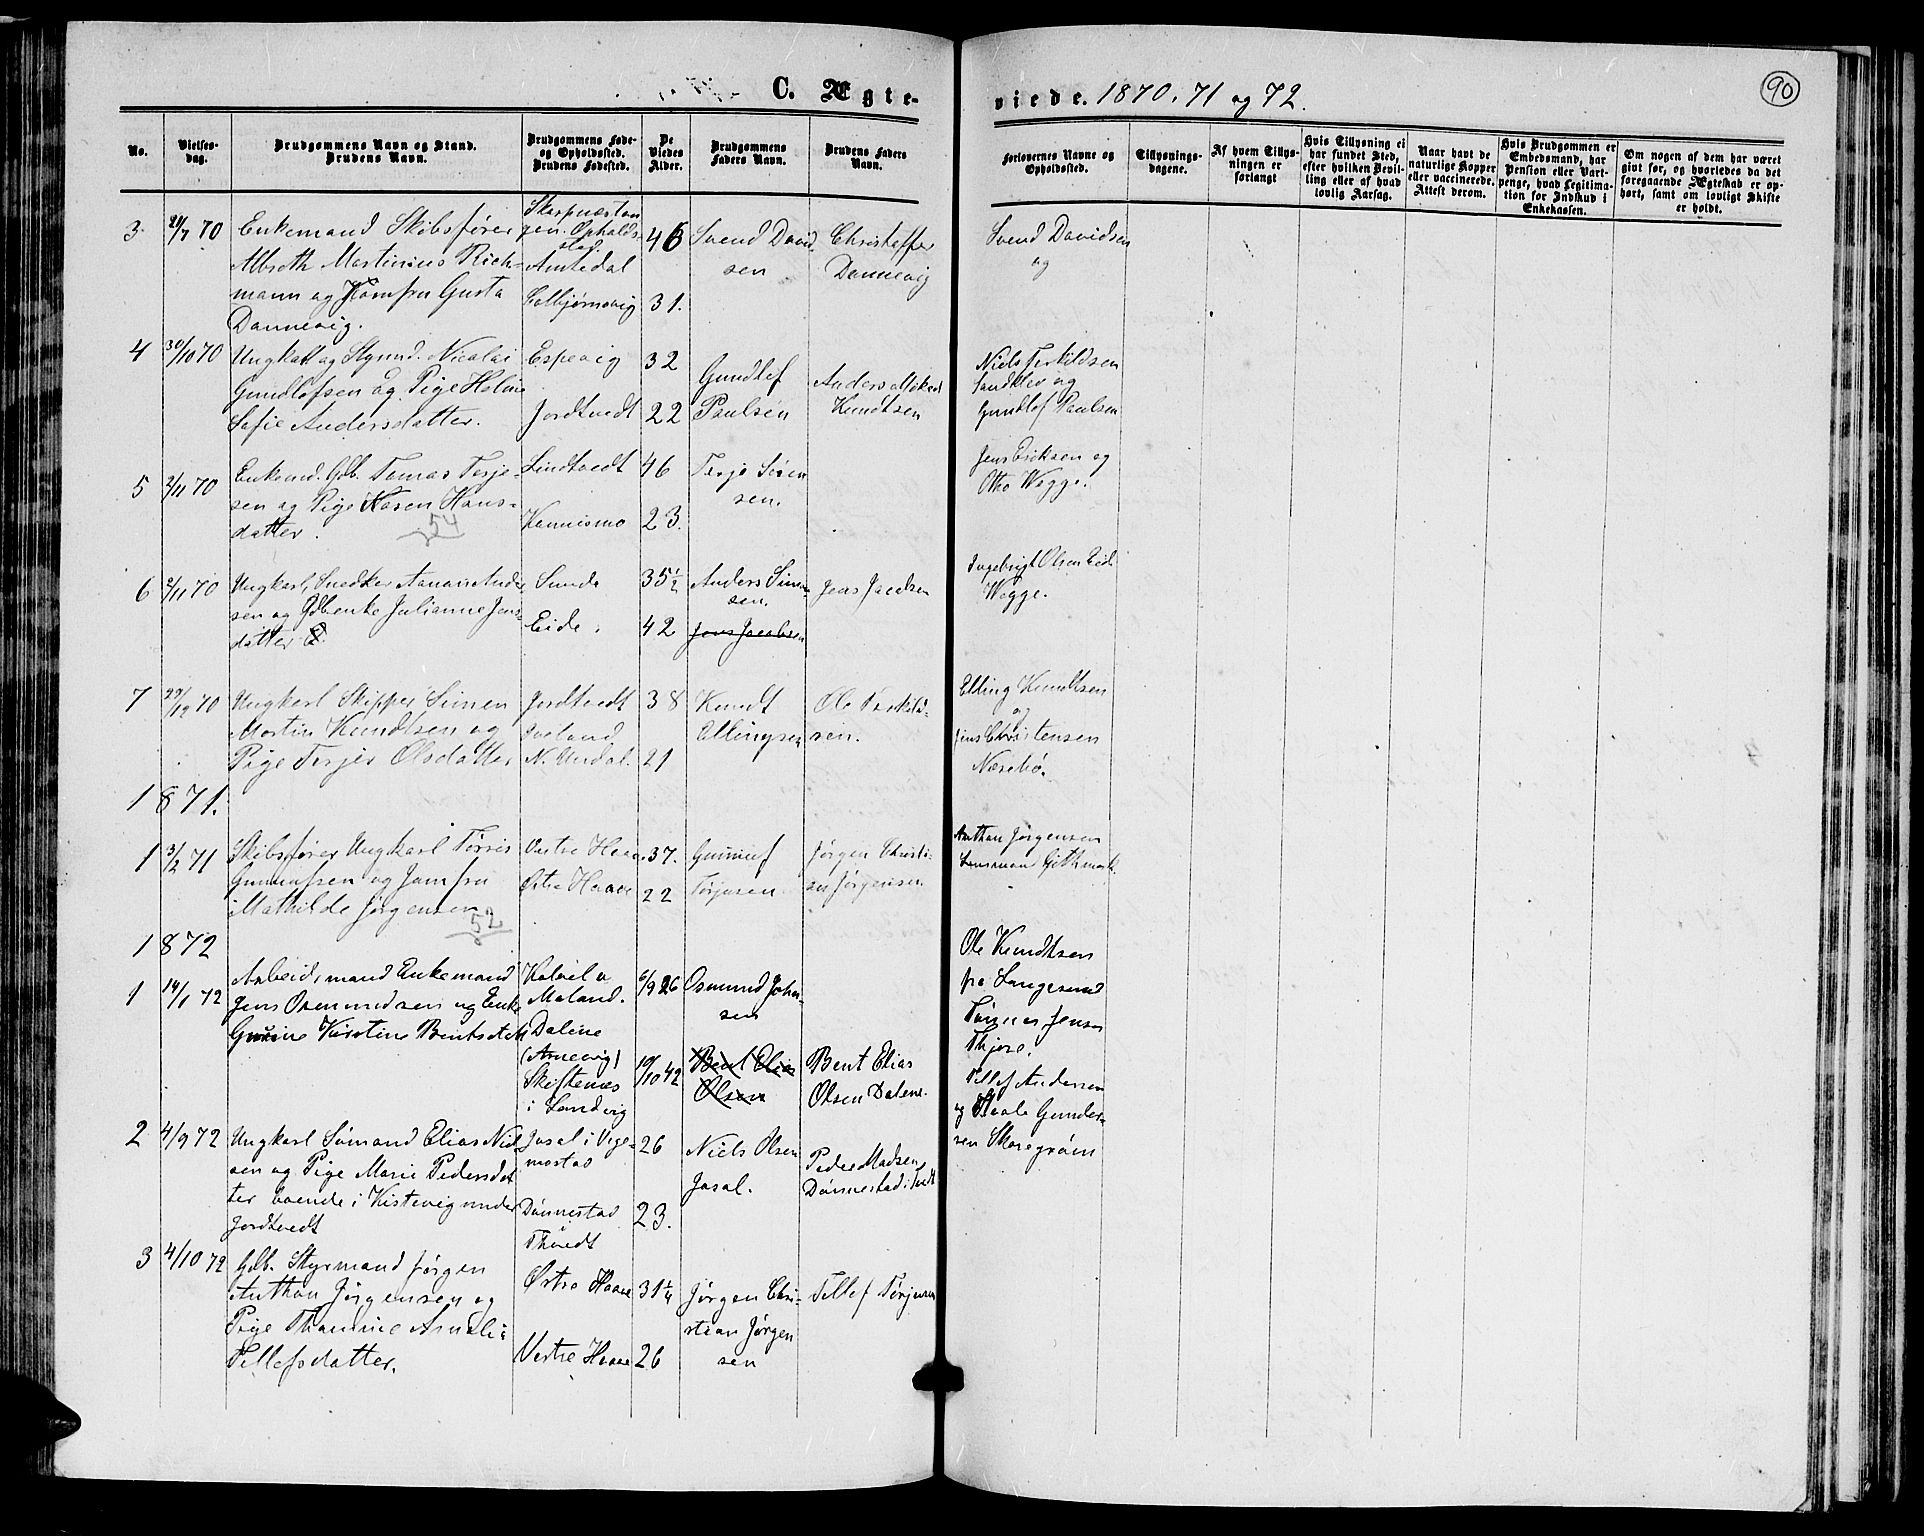 C. Ægte-
viede. 1870. 71 og 72.
90
No.
Vielses-
dag.
Brudgommens Navn og Stand.
Brudens Navn.
Brudgommens Føde-
og Opholdssted.
Brudens Fødested.
De
Viedes
Alder.
Brudgommens
Faders Navn.
Brudens Faders
Navn.
Forlovernes Navne og
Opholdssted.
Tillysnings-
dagene.
Af hvem Tillys-
ningen er
forlangt
Hvis Tillysning ei
har fundet Sted,
efter hvilken Bevil-
ling eller af hvad
lovlig Aarsag.
Naar havt de
naturlige Kopper
eller vaccinerede.
Attest derom.
Hvis Brudgommen er
Embedsmand, har
Pension eller Vart-
penge, hvad Legitima-
tion for Indskud i
Enkekassen.
Om nogen af dem har været
givt før, og hvorledes da det
foregaaende Ægteskab er op-
hørt, samt om lovligt Skifte
er holdt.
3. 21/7 70
Enkemand Skibsfører
Albreth Martinius Rich-
mann og Jomfru Gusta
Dannevig.
gen. Opholds-
sted.
46
31.
Svend David-
sen
Christoffer
Dannevig
Svend Davidsen
og
4 30/10 70
Ungkarl og Styrmd. Nicolai
Gundlofsen og Pige Helene
Sofie Andersdatter.
Espevig
Jordtvedt
32
22
Gundlef
Paulsen
Knudtsen
Niels Terkildsen
og
Gundlof Paulsen
5 2/11 70
Enkemd. Gdb. Tomas Terje-
sen og Pige Karen Hans-
datter.
54
Lindtvedt
46
23.
Terje Sören
sen.
Jens Eriksen og
Otto Wegge.
6 2/11 70
Ungkarl, Snedker Aanon Ander
sen og Gdbenke Julianne Jens-
datter
Sunde
Eide.
35½
42
Anders Simon
sen.
Jens Jacobsen
Jens Jacobsen
Ingebrigt Olsen Eide
Wegge.
7 29/12 70
Ungkarl Skipper Simen
Martin Knudtsen og
Pige Terjer Olsdatter
Jordtvedt
38
21
Knudt
Ellingsen
Ole Terkild-
sen.
Elling Knudtsen
og
Jens Christensen
Næsebø.
1871.
1 3/2 71
Skibsfører Ungkarl Tørris
Gunnufsen og Jomfru
Mathilde Jørgensen
52
Vestre Haave
Østre Haave
37.
22
Gunnuf
Tørjesen
Jørgen Christi-
an Jørgensen
Anthon Jørgensen
1872
1 14/1 72
Arbeidsmand Enkemand
Jens Osmundsen og Enke
Gunine Kirstine Bentsdatt
Maland.
Dalene
(Arnevig)
Skiftenæs
i Landvig
6/9 26
10/10 42
Osmund John-
sen
Bent Elias
Olsen
Bent Elias
Olsen Dalene.
Ole Knudtsen
fra Langesund
Tønnes Jensen
Thjore.
Tellef Andersen
og Staale Gunder-
sen Skaregrøm
2 4/9 72
Ungkarl Sømand Elias Niel
sen og Pige Marie Pedersdat
ter boende i Kistevig under
Jordtvedt
Jasal i Vege-
mostad
Dønnestad
i
Thvedt
26
23.
Niels Olsen
Jasal.
Peder Madsen
Dønnestad i Tvedt
3 4/10 72
Gdb. Styrmand Jørgen
Anthon Jørgensen og
Pige Thomine Amalie
Tellefsdatter.
Østre Haave
Vestre Haave
31¼
26
Jørgen Chri-
stian Jørgen
sen
Tellef Tørjesen